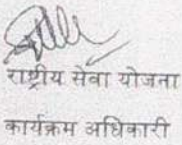 राष्ट्रीय सेवा योजना
कार्यक्रम अधिकारी